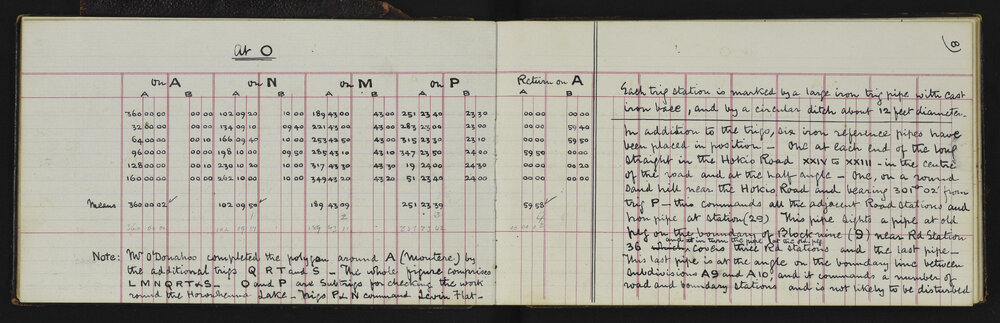 At O
on A on N on M on P Return on A
A B A B A B A B A B
360 00 00 00 00 102 09 20 10 00 189 43 00 43 00 251 23 40 23 30 00 00 00 00
32 00 00 00 00 134 09 10 09 40 221 43 00 43 00 283 23 40 23 00 00 00 59 40
64 00 00 00 10 166 09 40 10 00 253 42 50 43 00 315 23 30 23 10 59 50 00 00
96 00 00 00 00 198 10 00 09 50 285 43 10 43 10 347 23 50 24 00 59 50 00 00
128 00 00 00 10 230 10 20 10 00 317 43 30 43 30 19 24 00 24 30 00 00 00 20
160 00 00 00 00 262 10 00 10 00 349 43 20 43 20 51 23 40 24 00 59 50 00 00
Means 360 00 02 102 09 50 189 43 09 251 23 39 59 58
2 3 4
Note: Mr O'Donahoo completed the polygon around A (Moutere) by
the additional trigs Q R T and S — The whole figure comprises
L M N Q R T & S — O and P are Subtrigs for checking the work
round the Horowhenua Lake — Trigs P & N command Levin Flat —
8
Each trig station is marked by a large iron trig pipe with cast
iron base, and by a circular ditch about 12 feet diameter.
In addition to the trigs, six iron reference pipes have
been placed in position — One at each end of the long
straight in the Hokio Road XXIV to XXIII — in the centre
of the road and at the half angle — One, on a round
Sand hill near the Hokio Road and bearing 301° 02' from
trig P — this commands all the adjacent Road Stations and
iron pipe at Station (29) This pipe Sights a pipe at old
peg on the boundary of Block nine (9) near Rd Station
and it in turn the pipe at the old peg
36 covers three Rd stations and the last pipe —
This last pipe is at the angle on the boundary line between
Subdivisions A9 and A10, and it commands a number of
road and boundary stations and is not likely to be disturbed